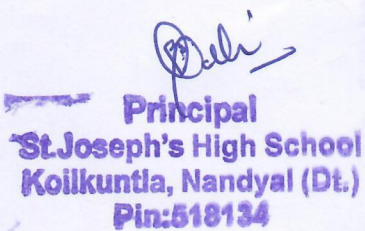 Principal
St.Joseph's High School
Koilkuntla, Nandyal (Dt.)
Pin:518134